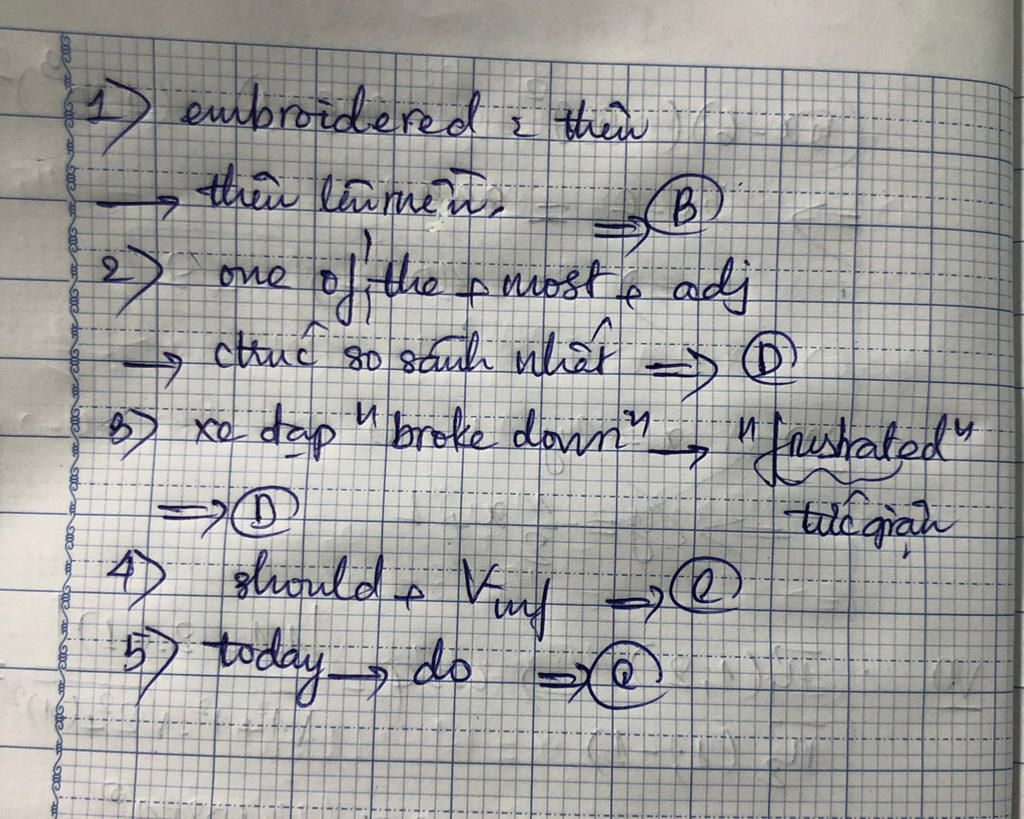 1) embroidered : thêu
→ thêu lên nền. ⇒ B
2) one of the + most + adj
→ ctruc so sánh nhất ⇒ D
3) xe đạp "broke down" → "frustrated"
⇒ D tức giận
4) should + Vinf ⇒ C
5) today → do ⇒ C